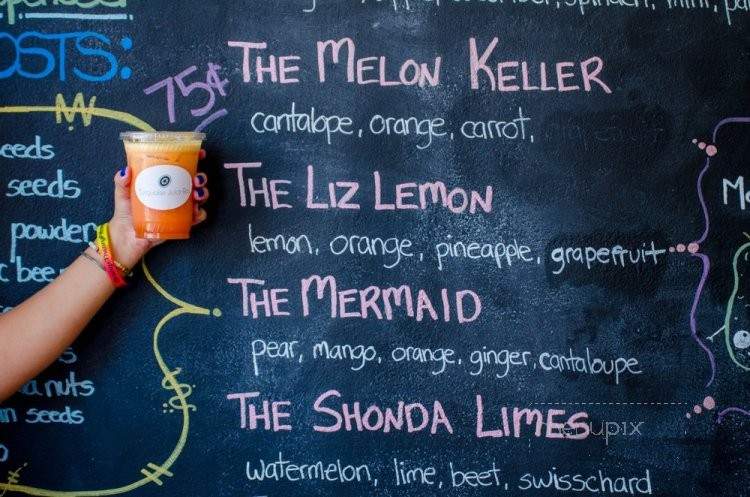 OSTS:
75¢
THE MELON KELLER
cantalope, orange, carrot,
THE LIZ LEMON
lemon, orange, pineapple, grapefruit
THE MERMAID
pear, mango, orange, ginger, cantaloupe
THE SHONDA LIMES
watermelon, lime, beet, swisschard
seeds
seeds
powder
bee
nuts
seeds
mint
menupix